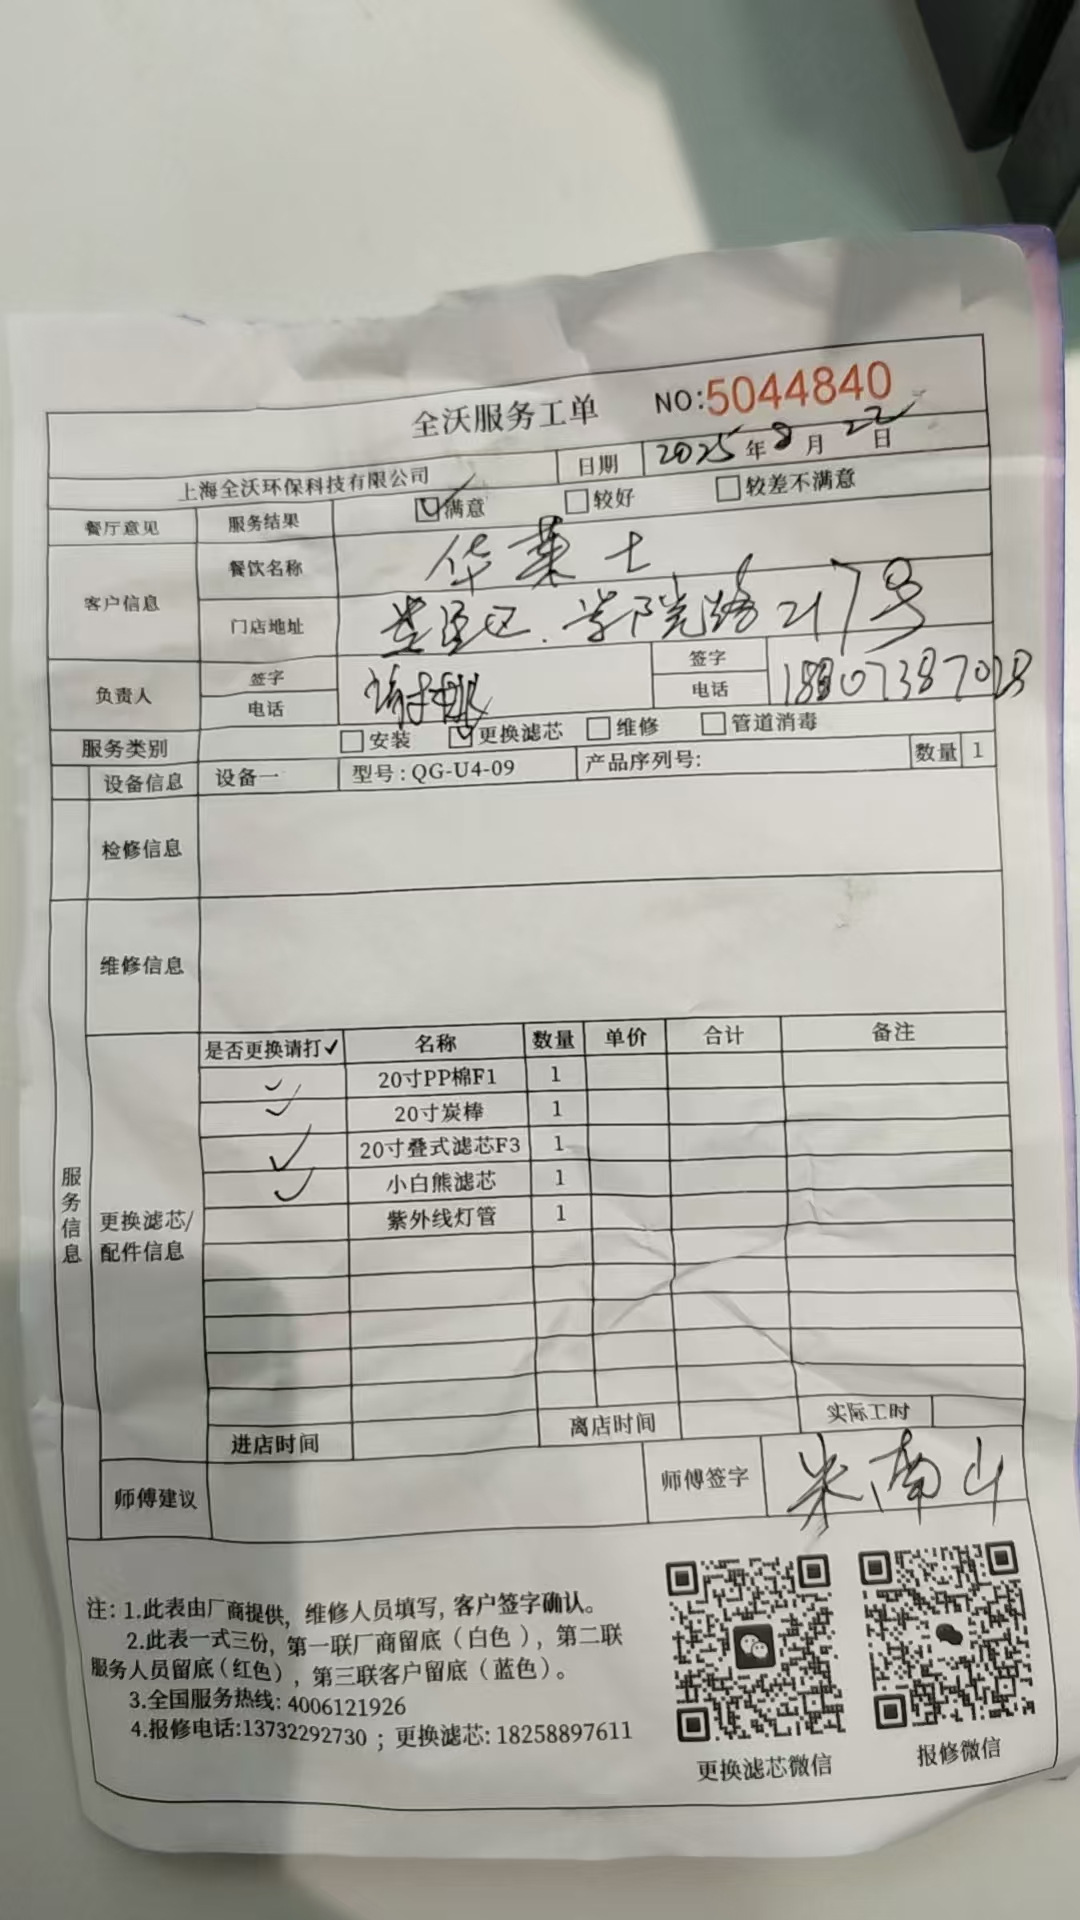 全沃服务工单 NO:5044840
上海全沃环保科技有限公司 日期 2025年8月22日
餐厅意见 服务结果 ☑满意 □较好 □较差不满意
客户信息 餐饮名称 华莱士
门店地址 娄星区.学院路217号
负责人 签字 电话 谢 签字 电话
服务类别 □安装 ☑更换滤芯 □维修 □管道消毒
设备信息 设备一 型号:QG-U4-09 产品序列号: 数量 1
检修信息
维修信息
服务信息
更换滤芯/配件信息
是否更换请打✓ 名称 数量 单价 合计 备注
✓ 20寸PP棉F1 1
✓ 20寸炭棒 1
✓ 20寸叠式滤芯F3 1
✓ 小白熊滤芯 1
紫外线灯管 1
进店时间 离店时间 实际工时
师傅建议 师傅签字 米南山
注: 1.此表由厂商提供, 维修人员填写, 客户签字确认。
2.此表一式三份, 第一联厂商留底（白色）, 第二联
服务人员留底(红色), 第三联客户留底（蓝色）。
3.全国服务热线: 4006121926
4.报修电话:13732292730 ; 更换滤芯: 18258897611
更换滤芯微信 报修微信